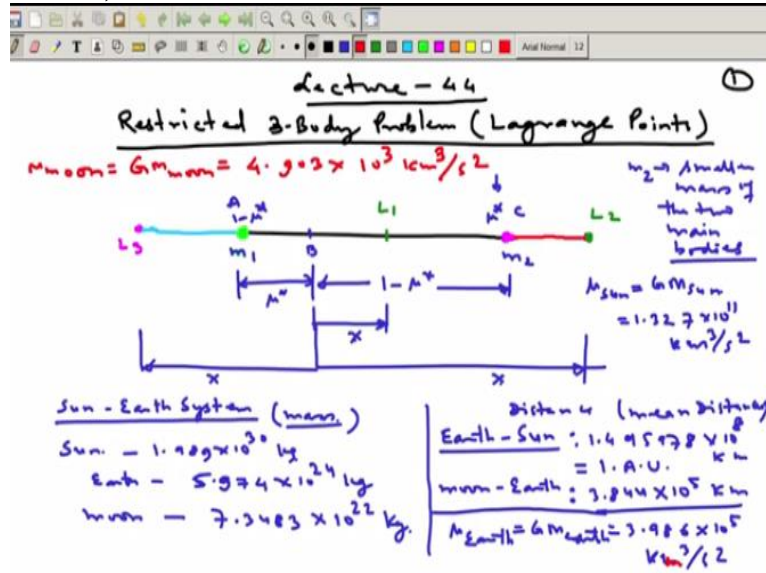 Arial Normal 12
Lecture - 44
①
Restricted 3-Body Problem (Lagrange Points)
μmoon = Gmmoon = 4.903 x 10³ km³/s²
m₂ → smaller
mass of
the two
main
bodies
A
1-μ*
L1
μ* C
L2
L3
m₁
B
m₂
μ*
1-μ*
μsun = GMsun
= 1.327 x 10¹¹
km³/s²
x
x
x
Sun - Earth System (mass)
Sun - 1.989 x 10³⁰ kg
Earth - 5.974 x 10²⁴ kg
moon - 7.3483 x 10²² kg.
Distance (mean Distance)
Earth - Sun : 1.495978 x 10⁸ km
= 1. A.U.
moon - Earth : 3.844 x 10⁵ km
μEarth = GMearth = 3.986 x 10⁵
km³/s²